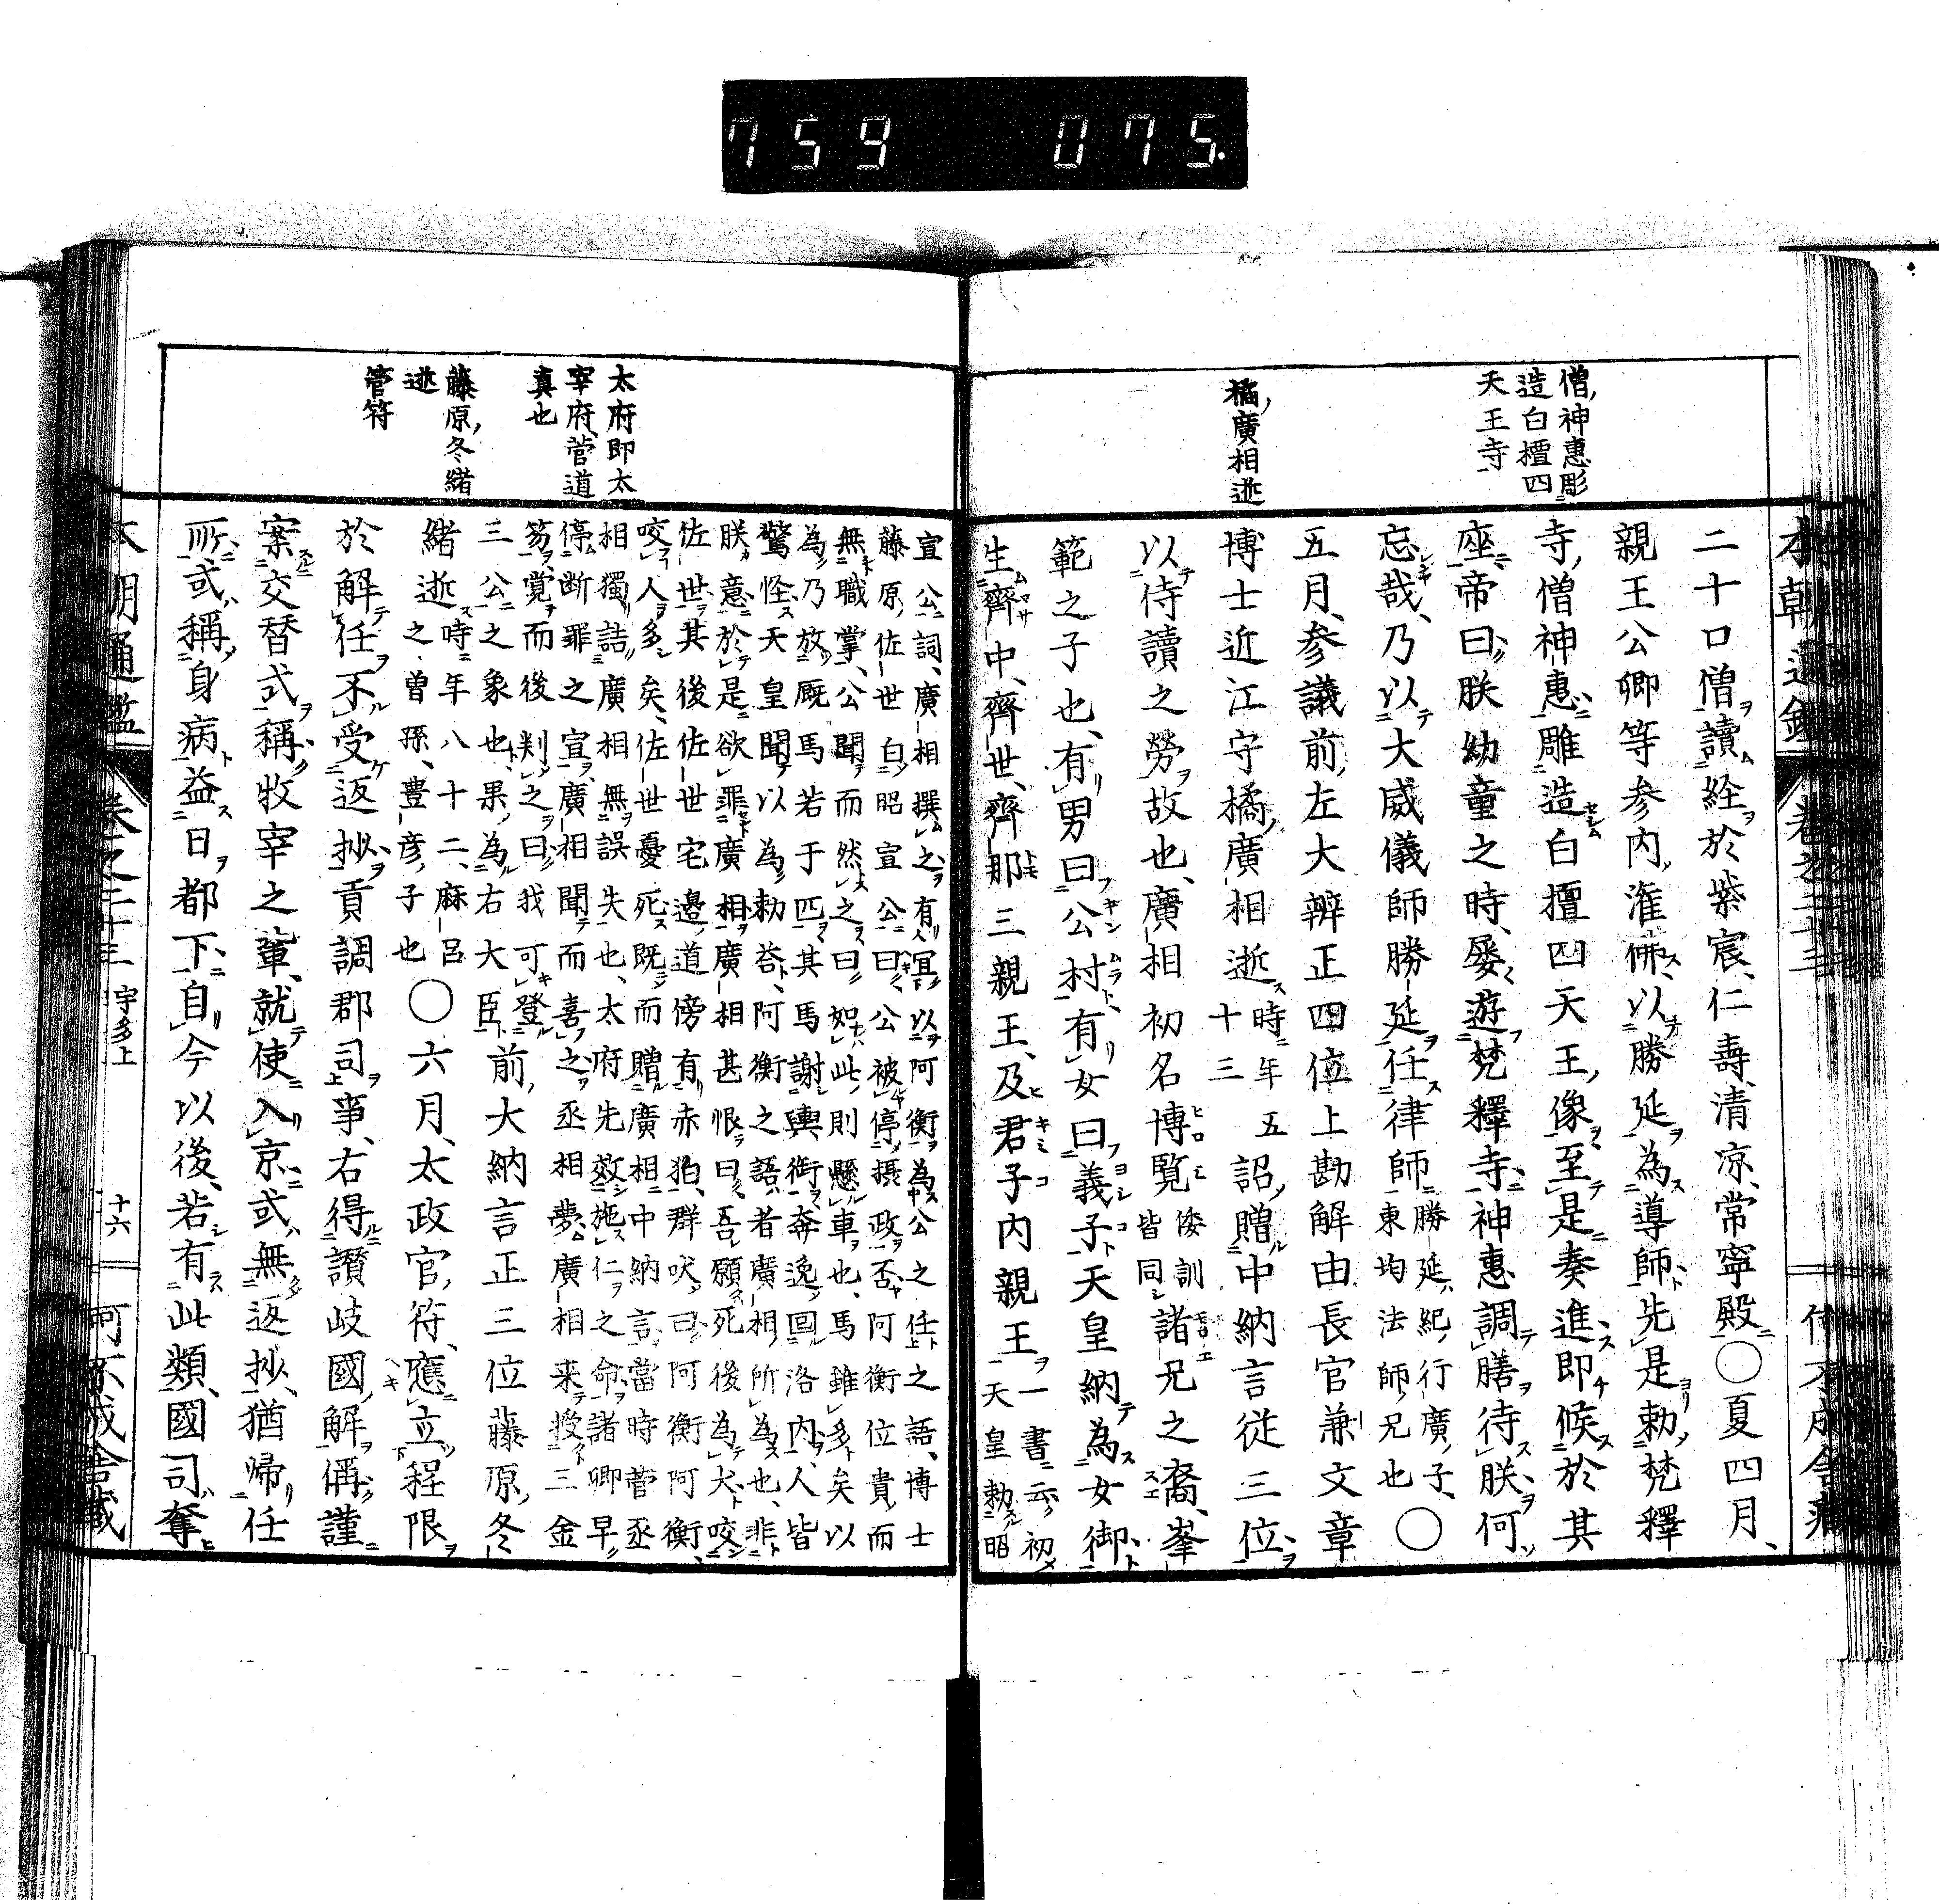 759 075.
僧神惠彫
造白檀四
天王寺
橘廣相逝
二十口僧讀経於紫宸、仁壽、清凉、常寧殿○夏四月、
親王公卿等参内、潅佛、以勝延為導師、先是勅梵釋
寺僧神惠雕造白擅四天王像、至是奏進、即候於其
座、帝曰、朕幼童之時、屡遊梵釋寺、神惠調膳待朕、何
忘哉、乃以大威儀師勝延任律師勝延、紀行廣子、東均法師兄也○
五月、参議前左大辨正四位上勘解由長官兼文章
博士近江守橘廣相逝時年五十三詔贈中納言従三位、
以侍讀之勞故也、廣相初名博覧倭訓皆同諸兄之裔、峯
範之子也、有男曰公村、有女曰義子、天皇納為女御、
生齊中、齊世、齊那三親王、及君子内親王一書云、初天皇勅昭
太府即太
宰府菅道
真也
藤原冬緒
逝
管符
宣公詞、廣相撰之、有宜以阿衡為公之任之語、博士
藤原佐世白昭宣公曰、公被停摂政否、阿衡位貴而
無職掌、公聞而然之曰、如此則懸車也、馬雖多矣以
為乃放厩馬若于匹、其馬謝輿、衒奔逸回洛内、人皆
驚怪、天皇聞以為勅答、阿衡之語者廣相所為也、非
朕意、於是欲罪廣相、廣相甚恨曰、吾願死後為大咬
佐世、其後佐世宅邉道傍有赤狛、群吠曰阿衡阿衡、
咬人多矣、佐世憂死、既而贈廣相中納言、當時菅丞
相獨詰廣相無誤失也、太府先效施仁之命諸卿早
停断罪之宣、廣相聞而喜之、丞相夢廣相来授三金
笏、覚而後判之曰、我可登三公之象也、果為右大臣前大納言正三位藤原冬
緒逝時年八十二、麻呂之曽孫、豊彦子也○六月、太政官符、應立程限
於解任不受返抄貢調郡司事、右得讃岐國解偁、謹
案交替式稱、牧宰之輩、就使入京、或無返抄、猶帰任
所、或稱身病、益日都下、自今以後、若有此類、國司奪
本朝通鑑 巻之二十三 宇多上 十六